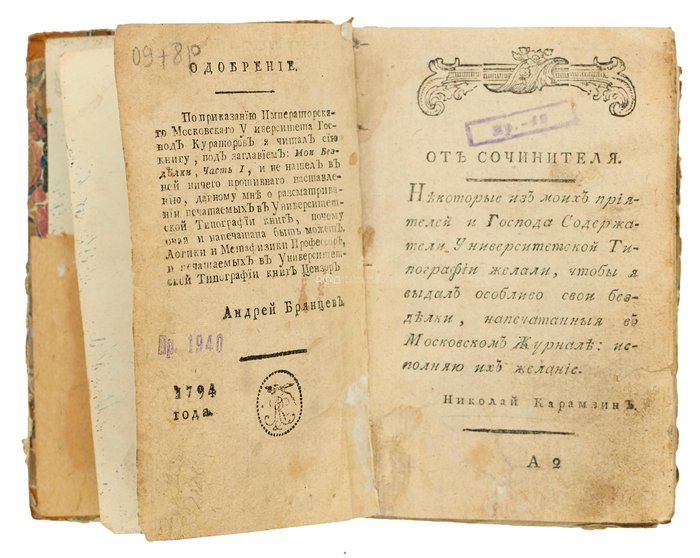 09+8р
ОДОБРЕНІЕ.
По приказанію Императорска-
го Московскаго У иверситета Гос-
подъ Кураторовъ я читалъ сію
книгу, подъ заглавіемъ: Мои Без-
дѣлки, Часть I, и не нашелъ въ
ней ничего противнаго наставле-
нію, данному мнѣ о разсматрива-
ніи печатаемыхъ въ Университет-
ской Типографіи книгъ, почему
оная и напечатана быть можетъ.
Логики и Метафизики Профессоръ,
и печатаемыхъ въ Университет-
ской Типографіи книгъ Цензоръ
Андрей Брянцевъ.
Пр. 1940
1794
года.
Пр.-49
ОТЪ СОЧИНИТЕЛЯ.
Нѣкоторые изъ моихъ прія-
телей и Господа Содержа-
тели Университетской Ти-
пографіи желали, чтобы я
выдалъ особливо свои без-
дѣлки, напечатанныя въ
Московскомъ Журналѣ: ис-
полняю ихъ желаніе.
Николай Карамзинъ.
А 2